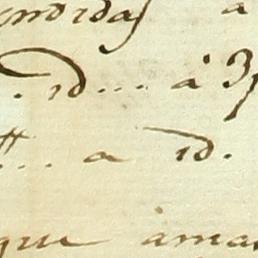 endidas a
. id... à 3
... a id.
que ama